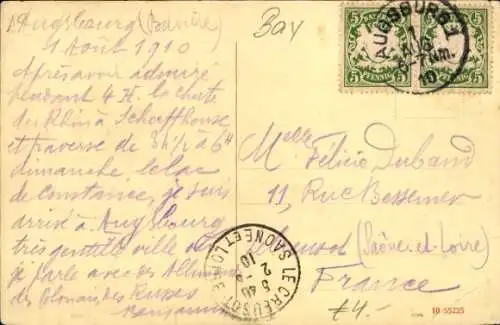 Augsbourg (Bavière)
1 Août 1910
Après avoir admiré
pendant 4 H. la chute
du Rhin à Schaffhouse
et traversé de 3h 1/2 à 6h
dimanche le lac
de Constance, je suis
arrivé à Augsbourg
très gentille ville où
je parle avec des Allemands
des Polonais des Russes
Benjamin
Bay
BAYERN
5 5
PFENNIG
BAYERN
5 5
PFENNIG
AUGSBURG 1
1
AUG
10
Melle Félicie Duband
11, Rue Bessemer
Creusot (Saône-et-Loire)
France
LE CREUSOT
SAONE ET LOIRE
5 40
2 - 8
10
#4.-
10 55225